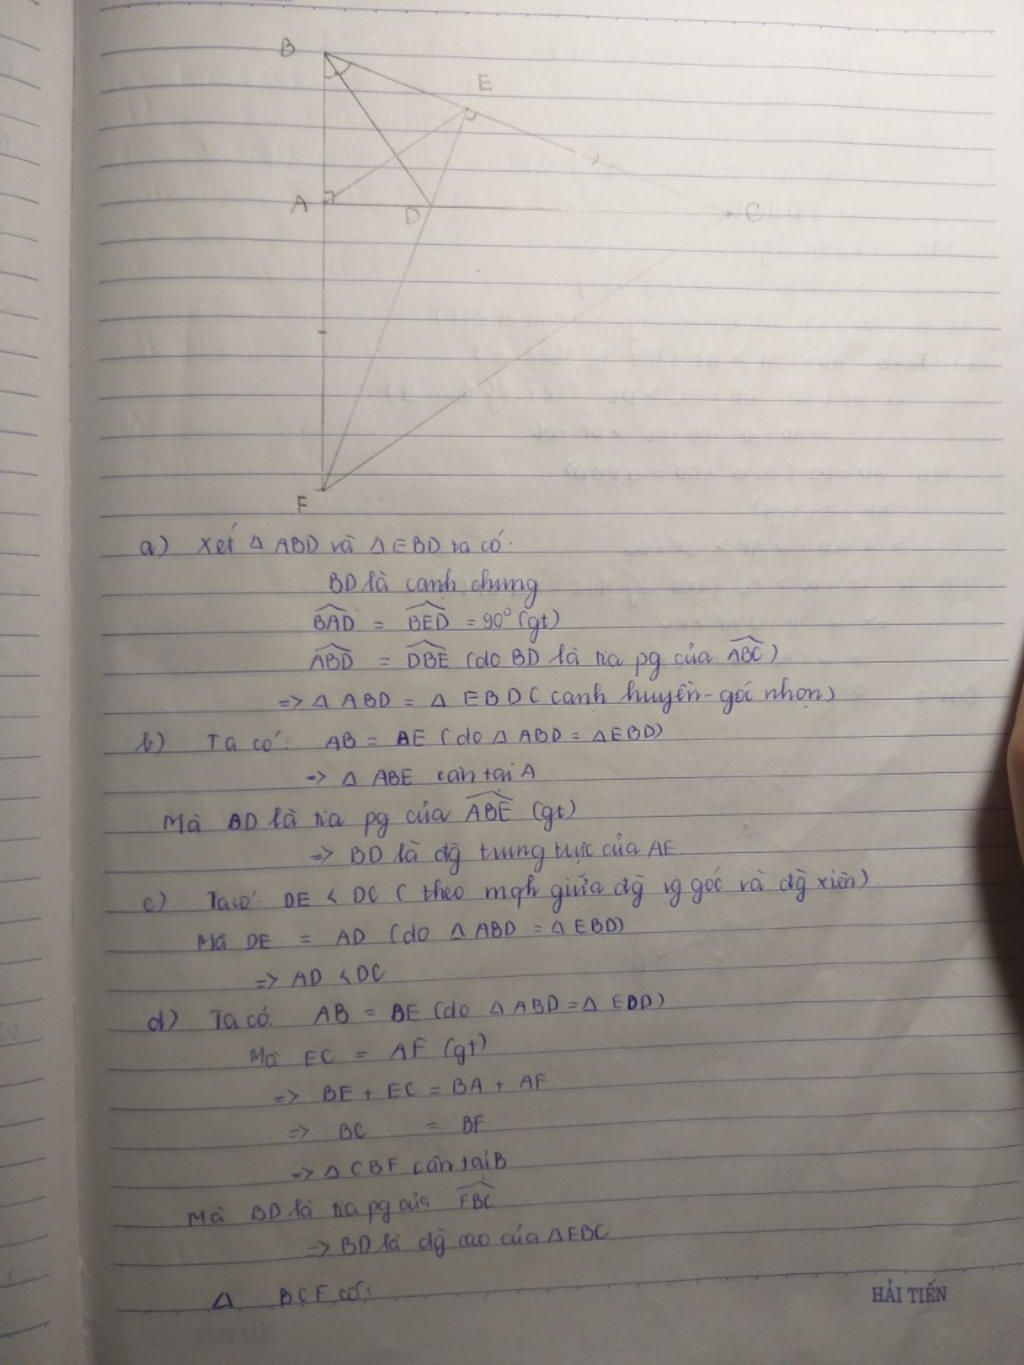 B
E
A
D
C
F
a) Xét Δ ABD và Δ EBD ta có:
BD là cạnh chung
BAD = BED = 90° (gt)
ABD = DBE (do BD là tia pg của ABC)
=> Δ ABD = Δ EBD (cạnh huyền - góc nhọn)
b) Ta có: AB = BE (do Δ ABD = Δ EBD)
=> Δ ABE cân tại A
Mà BD là tia pg của ABE (gt)
=> BD là đg trung trực của AE
c) Ta có: DE < DC (theo mqh giữa đg vg góc và đg xiên)
Mà DE = AD (do Δ ABD = Δ EBD)
=> AD < DC
d) Ta có: AB = BE (do Δ ABD = Δ EBD)
Mà EC = AF (gt)
=> BE + EC = BA + AF
=> BC = BF
=> Δ CBF cân tại B
Mà BD là tia pg của FBC
=> BD là đg cao của Δ FBC
Δ BCF có:
HẢI TIẾN